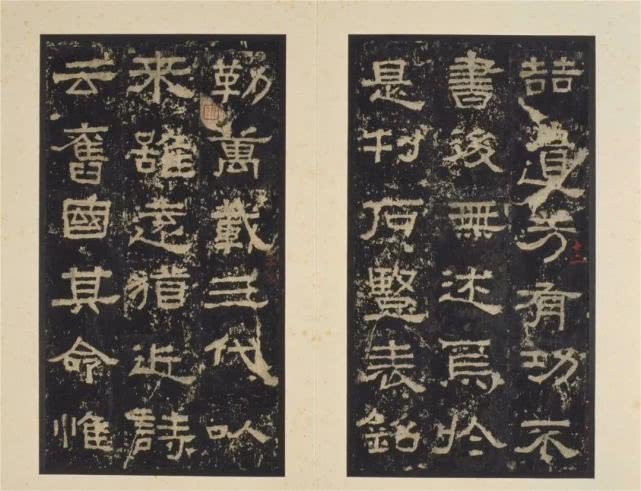 喆遺芳有功不
書後無述焉於
是刊石豎表銘
勒萬載三代以
来雖遠猶近詩
云舊國其命惟